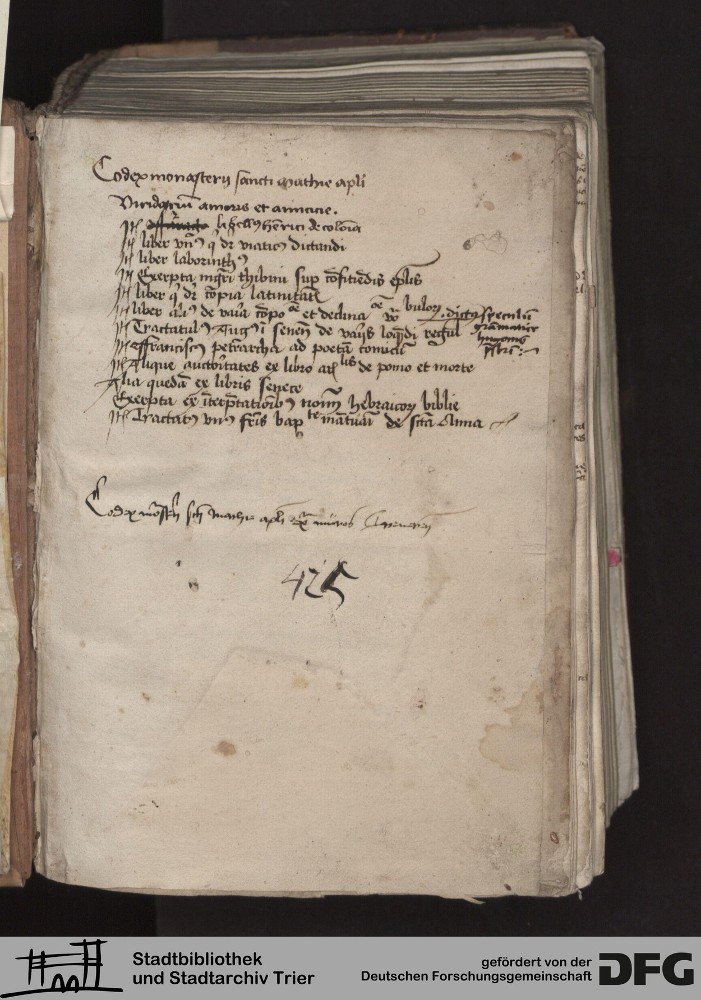 Codex monasterij sancti Mathie apli
Viridariu amoris et amicicie.
It libellus henrici de colonia
It liber vnus q dr viaticus dictandi
It liber laborinthus
It Excerpta mgri thibini sup cofitiedis eplis
It liber q dr copia latinitatis
It liber de vaia copoe et declinaoe vboru bulorum. dictus speculu
gramatice
It Tractatulus Augi senen de vaijs loqdi regulis
It ffranciscus petrarcha ad poeta comicu
It Alique auctoritates ex libro arlis de pomo et morte
Alia queda ex libris senece
Excerpta ex iterptationibus noim hebraicorum biblie
It Tractatus vnus fris baptte matuai de scta Anna
Codex mosterij sci mathie apli exa muros Treueren
425
Stadtbibliothek
und Stadtarchiv Trier
gefördert von der
Deutschen Forschungsgemeinschaft
DFG